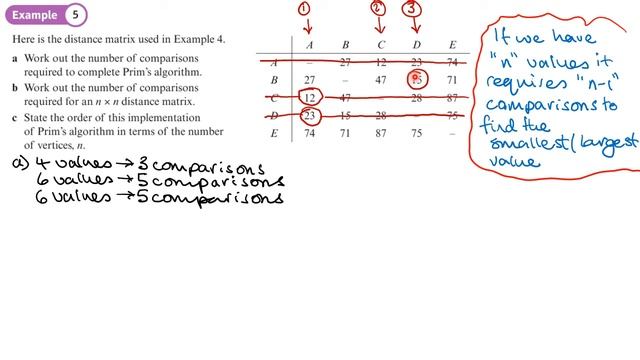 Example 5
Here is the distance matrix used in Example 4.
a Work out the number of comparisons
required to complete Prim's algorithm.
b Work out the number of comparisons
required for an n × n distance matrix.
c State the order of this implementation
of Prim's algorithm in terms of the number
of vertices, n.
1 2 3
A B C D E
A – 27 12 23 74
B 27 – 47 15 71
C 12 47 – 28 87
D 23 15 28 – 75
E 74 71 87 75 –
a) 4 values → 3 comparisons
6 values → 5 comparisons
6 values → 5 comparisons
If we have
"n" values it
requires "n-1"
comparisons to
find the
smallest/largest
value